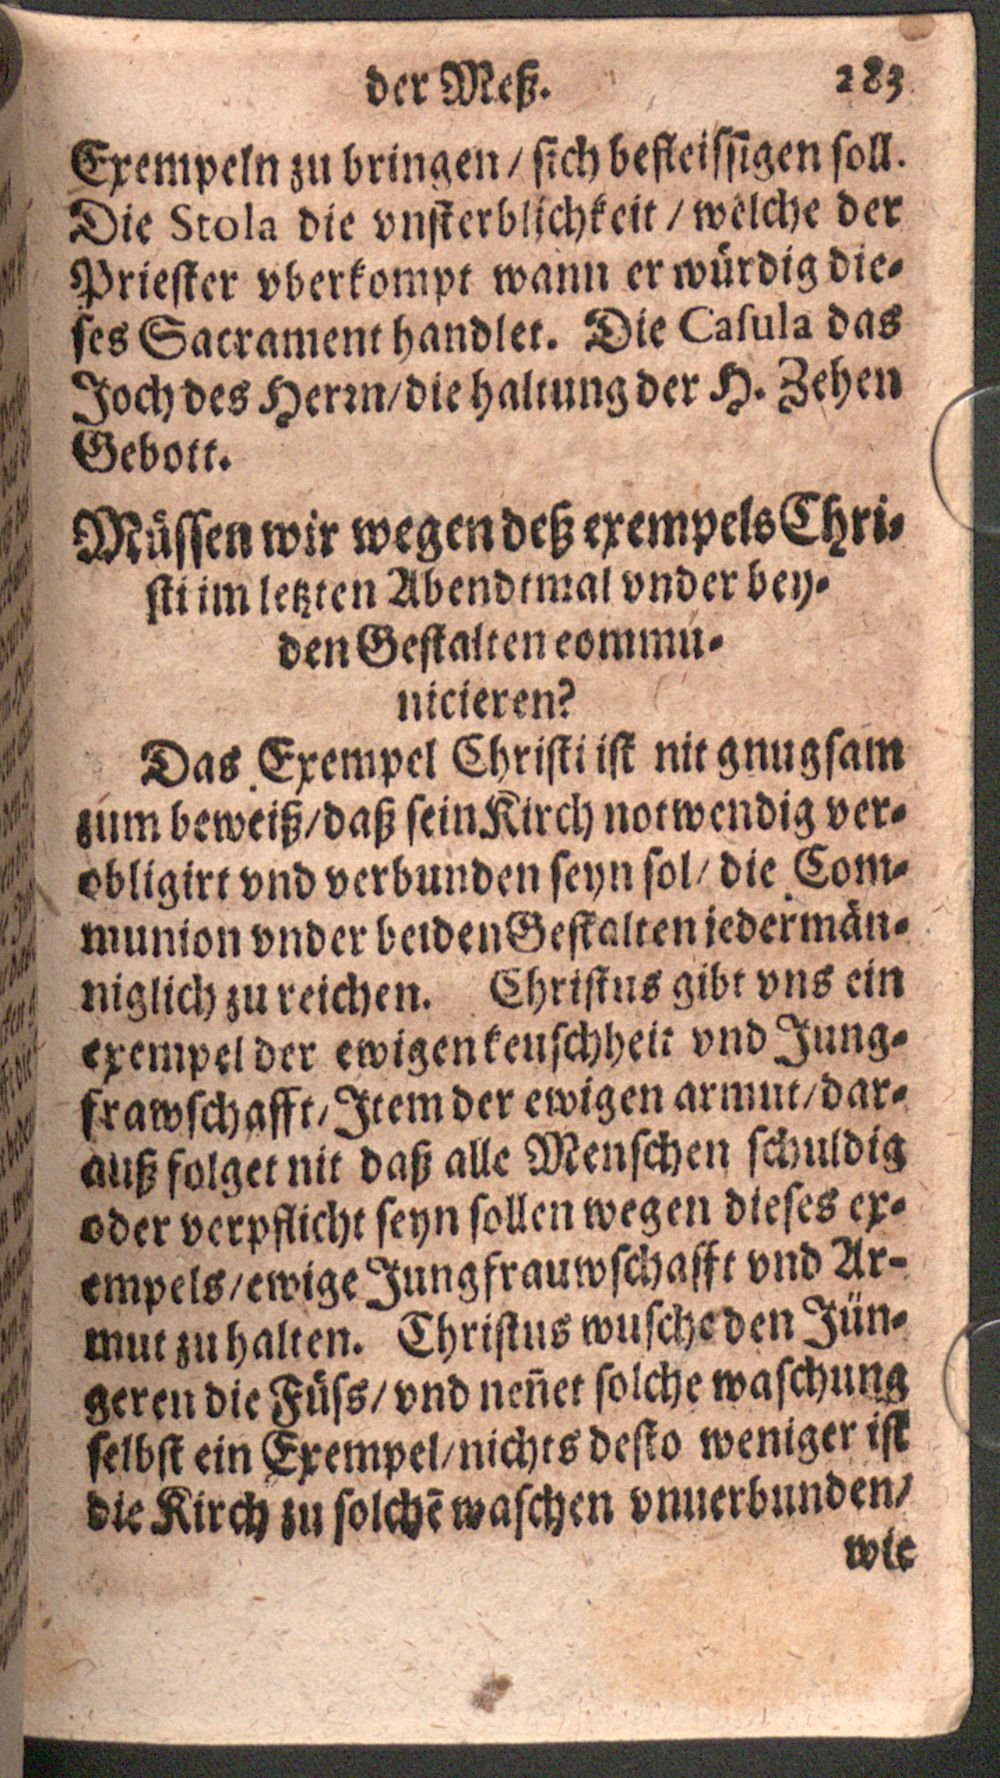 der Meß. 283
Exempeln zu bringen / sich befleissigen soll.
Die Stola die vnsterblichkeit / welche der
Priester vberkompt wann er würdig die-
ses Sacrament handlet. Die Casula das
Joch des Herrn/die haltung der H. Zehen
Gebott.
Müssen wir wegen deß exempels Chri-
sti im letzten Abendtmal vnder bey-
den Gestalten commu-
nicieren?
Das Exempel Christi ist nit gnugsam
zum beweiß/daß sein Kirch notwendig ver-
obligirt vnd verbunden seyn sol/ die Com-
munion vnder beiden Gestalten jedermän-
niglich zu reichen. Christus gibt vns ein
exempel der ewigen keuschheit vnd Jung-
frawschafft/Item der ewigen armut/dar-
auß folget nit daß alle Menschen schuldig
oder verpflicht seyn sollen wegen dieses ex-
empels/ewige Jungfrauwschafft vnd Ar-
mut zu halten. Christus wusche den Jün-
geren die Füss/vnd neñet solche waschung
selbst ein Exempel/nichts desto weniger ist
die Kirch zu solchē waschen vnuerbunden/
wie